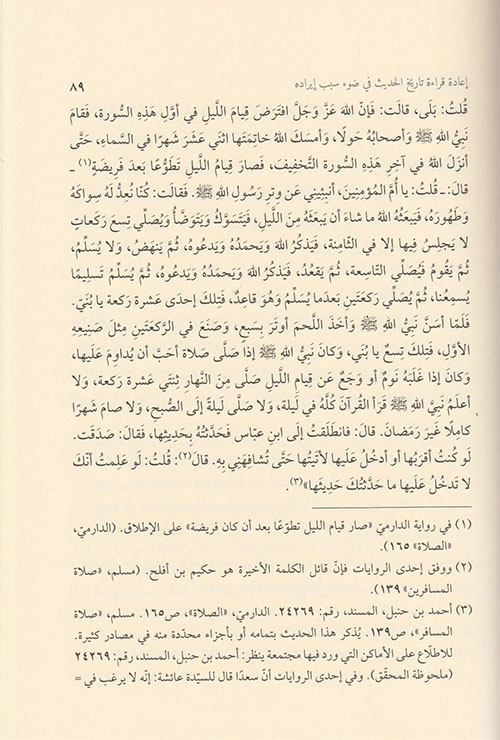 إعادة قراءة تاريخ الحديث في ضوء سبب إيراده ٨٩
قُلتُ: بَلى، قالَت: فَإنّ اللهَ عَزَّ وَجَلَّ افتَرَضَ قِيامَ اللَّيلِ في أوَّلِ هَذِهِ السُّورة، فَقامَ
نَبِيُّ اللهِ ﷺ وَأصحابُهُ حَولًا، وَأمسَكَ اللهُ خاتِمَتَها اثنَي عَشَرَ شَهرًا في السَّماءِ، حَتَّى
أنزَلَ اللهُ في آخِرِ هَذِهِ السُّورة التَّخفيفَ، فَصارَ قِيامُ اللَّيلِ تَطَوُّعًا بَعدَ فَريضَةٍ(١) ـ
قالَ: ـ قُلتُ: يا أُمَّ المُؤمِنينَ، أنبِئيني عَن وِترِ رَسُولِ اللهِ ﷺ. فَقالَت: كُنّا نُعِدُّ لَهُ سِواكَهُ
وَطَهُورَهُ، فَيَبعَثُهُ اللهُ ما شاءَ أن يَبعَثَهُ مِنَ اللَّيلِ، فَيَتَسَوَّكُ وَيَتَوَضَّأُ وَيُصَلِّي تِسعَ رَكَعاتٍ
لا يَجلِسُ فِيها إلا في الثّامِنة، فَيَذكُرُ اللهَ وَيَحمَدُهُ وَيَدعُوهُ، ثُمَّ يَنهَضُ، وَلا يُسَلِّمُ،
ثُمَّ يَقُومُ فَيُصَلِّي التّاسِعة، ثُمَّ يَقعُدُ، فَيَذكُرُ اللهَ وَيَحمَدُهُ وَيَدعُوهُ، ثُمَّ يُسَلِّمُ تَسليمًا
يُسمِعُنا، ثُمَّ يُصَلِّي رَكعَتَينِ بَعدَما يُسَلِّمُ وَهُوَ قاعِدٌ، فَتِلكَ إحدَى عَشرة رَكعة يا بُنَيّ.
فَلَمّا أسَنَّ نَبِيُّ اللهِ ﷺ وَأخَذَ اللَّحمَ أوتَرَ بِسَبعٍ، وَصَنَعَ في الرَّكعَتَينِ مِثلَ صَنيعِهِ
الأوَّلِ، فَتِلكَ تِسعٌ يا بُنَي، وَكانَ نَبِيُّ اللهِ ﷺ إذا صَلَّى صَلاة أحَبَّ أن يُداوِمَ عَلَيها،
وَكانَ إذا غَلَبَهُ نَومٌ أو وَجَعٌ عَن قِيامِ اللَّيلِ صَلَّى مِنَ النَّهارِ ثِنتَي عَشرة رَكعة، وَلا
أعلَمُ نَبِيَّ اللهِ ﷺ قَرَأ القُرآنَ كُلَّهُ في لَيلة، وَلا صَلَّى لَيلةً إلَى الصُّبحِ، وَلا صامَ شَهرًا
كامِلًا غَيرَ رَمَضانَ. قالَ: فانطَلَقتُ إلَى ابنِ عبّاس فَحَدَّثتُهُ بِحَدِيثِها، فَقالَ: صَدَقَت.
لَو كُنتُ أقرَبُها أو أدخُلُ عَلَيها لأتَيتُها حَتَّى تُشافِهَنِي بِهِ. قالَ(٢): قُلتُ: لَو عَلِمتُ أنّكَ
لا تَدخُلُ عَلَيها ما حَدَّثتُكَ حَدِيثَها»(٣).
(١) في رواية الدارميّ «صار قيام الليل تطوّعًا بعد أن كان فريضة» على الإطلاق. (الدارميّ،
«الصلاة» ١٦٥).
(٢) ووفق إحدى الروايات فإنّ قائل الكلمة الأخيرة هو حكيم بن أفلح. (مسلم، «صلاة
المسافرين» ١٣٩).
(٣) أحمد بن حنبل، المسند، رقم: ٢٤٢٦٩. الدارميّ، «الصلاة»، ص١٦٥. مسلم، «صلاة
المسافر»، ص١٣٩. يُذكر هذا الحديث بتمامه أو بأجزاء محدّدة منه في مصادر كثيرة.
للاطّلاع على الأماكن التي ورد فيها مجتمعة ينظر: أحمد بن حنبل، المسند، رقم: ٢٤٢٦٩
(ملحوظة المحقّق). وفي إحدى الروايات أنّ سعدًا قال للسيّدة عائشة: إنّه لا يرغب في =